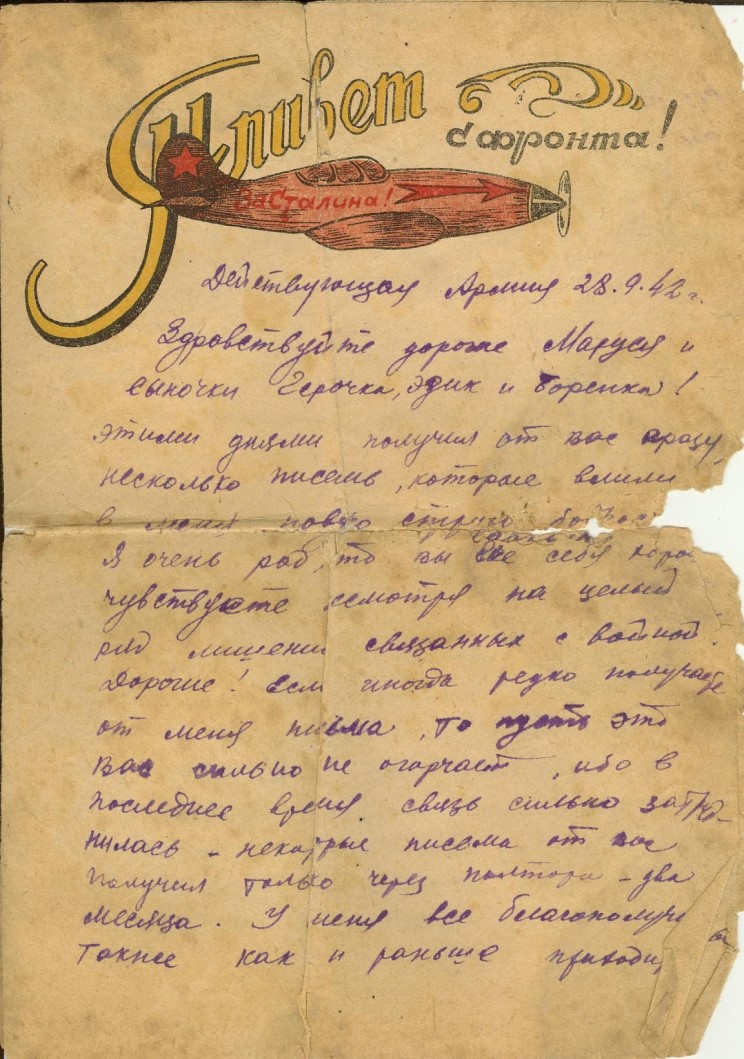 Привет
с фронта!
За Сталина!
Действующая Армия 28.9.42 г.
Здравствуйте дорогие Маруся и
сыночки Герочка, Эдик и Боренька!
этими днями получил от вас сразу
несколько писемь, которые влили
в меня новую струю
Я очень рад, что вы все себя
чувствуете смотря на целый
ряд лишений связанных с войной.
Дорогие! если иногда редко получаете
от меня письма, то пусть это
вас сильно не огорчает, ибо в
последнее время связь сильно затруд-
нилась - некоторые письма от вас
получил только через полтора - два
месяца. У меня все благополуч
также как и раньше приходи